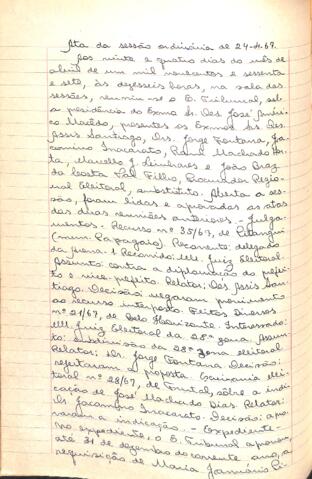 Ata da sessão ordinária de 24-4-67.
Aos vinte e quatro dias do mês de
abril de um mil novecentos e sessenta
e sete, às dezesseis horas, na sala das
sessões, reuniu-se o E. Tribunal, sob
a presidência do Exmo Sr. Des. José Améri-
co Macêdo, presentes os Exmos Srs. Des.
Assis Santiago, Drs. Jorge Fontana, Ja-
comino Inacarato, Machado Hor-
ta, Marcello J. Linhares e João Braz
da Costa Val Filho, Procurador Regio-
nal Eleitoral, substituto. Aberta a ses-
são, foram lidas e aprovadas as atas
das duas reuniões anteriores. - Julga-
mentos. - Recurso nº 35/67, de Pitangui
(mun. Papagaio). Recorrente: delegado
da Arena. Recorrido: MM. Juiz Eleitoral.
Assunto: contra a diplomação do prefei-
to e vice-prefeito. Relator: Des. Assis San-
tiago. Decisão: negaram provimento
ao recurso interposto. Feitos Diversos
nº 21/67, de Belo Horizonte. Interessado:
MM. Juiz Eleitoral da 28ª zona. Assun-
to: subdivisão da 28ª zona eleitoral.
Relator: Dr. Jorge Fontana. Decisão:
rejeitaram a proposta. Escrivania Elei-
toral nº 28/67, de Frutal, sôbre a indi-
cação de José Machado Dias. Relator:
Dr. Jacomino Inacarato. Decisão: apro-
varam a indicação. - Expediente -
no expediente, o E. Tribunal aprovou,
até 31 de dezembro do corrente ano, a
requisição de Maria Januário Ri-